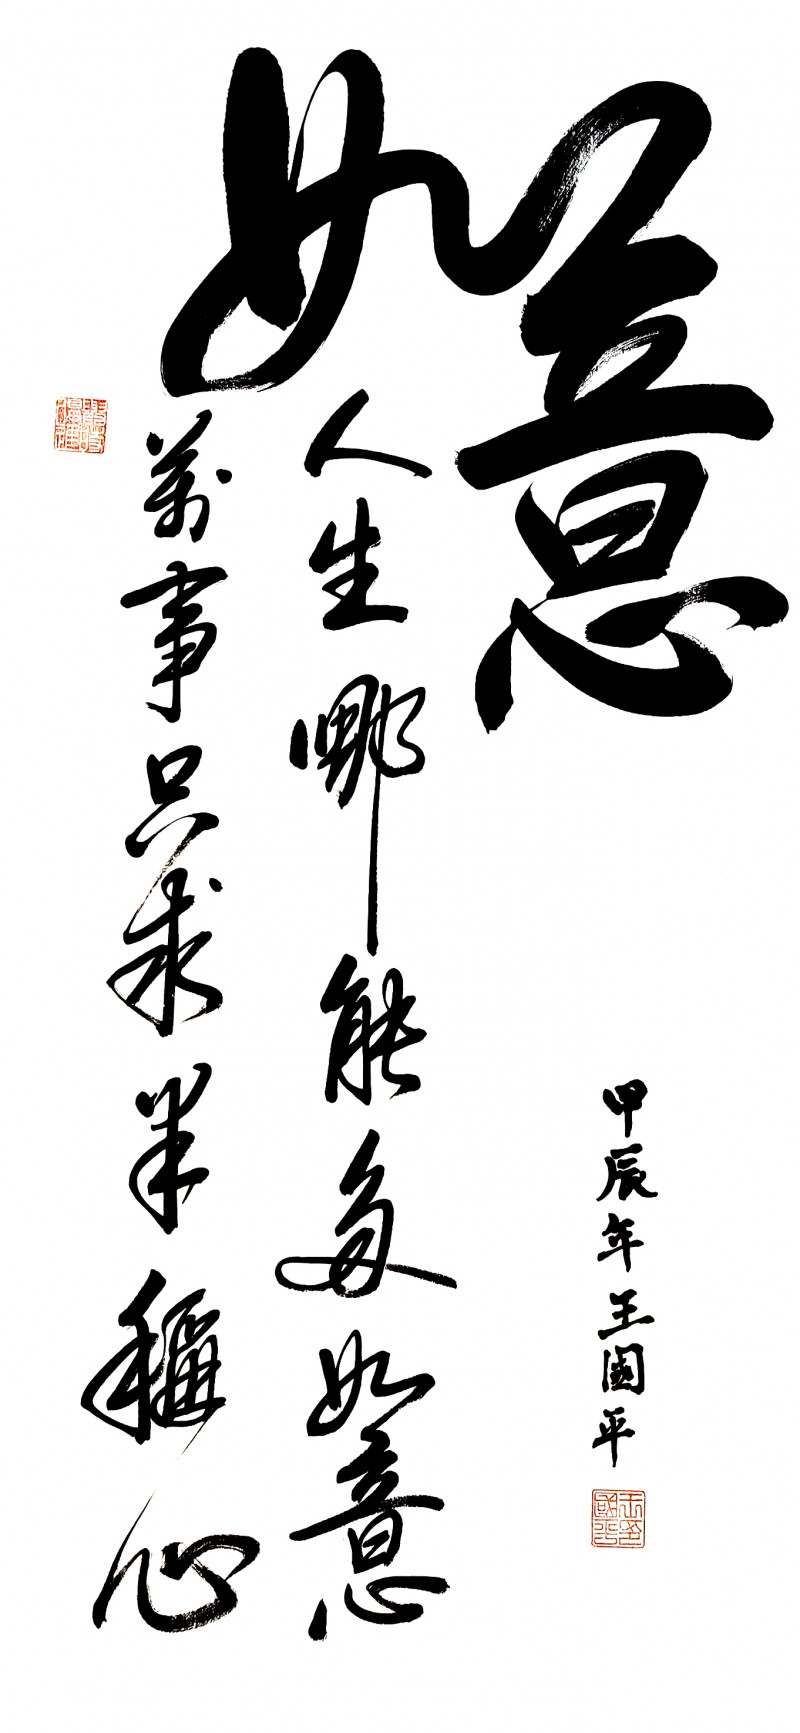 如意
人生哪能多如意
萬事只求半稱心
甲辰年王國平